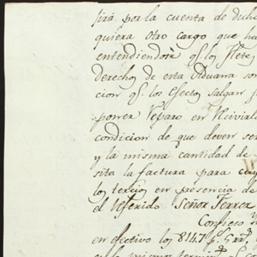 sirá por la cuenta de dicho
quiera otro cargo que ha
entendiendose q.e los Fletes
Derechos de esta Aduana son
cion q.e los efectos salgan
poner reparo en
condicion de que deven ser
y la misma cantidad de
sita la factura para
los tercios en presencia de
el referido Señor Ferrer
Confieso
en efectivo los 8147 p.s